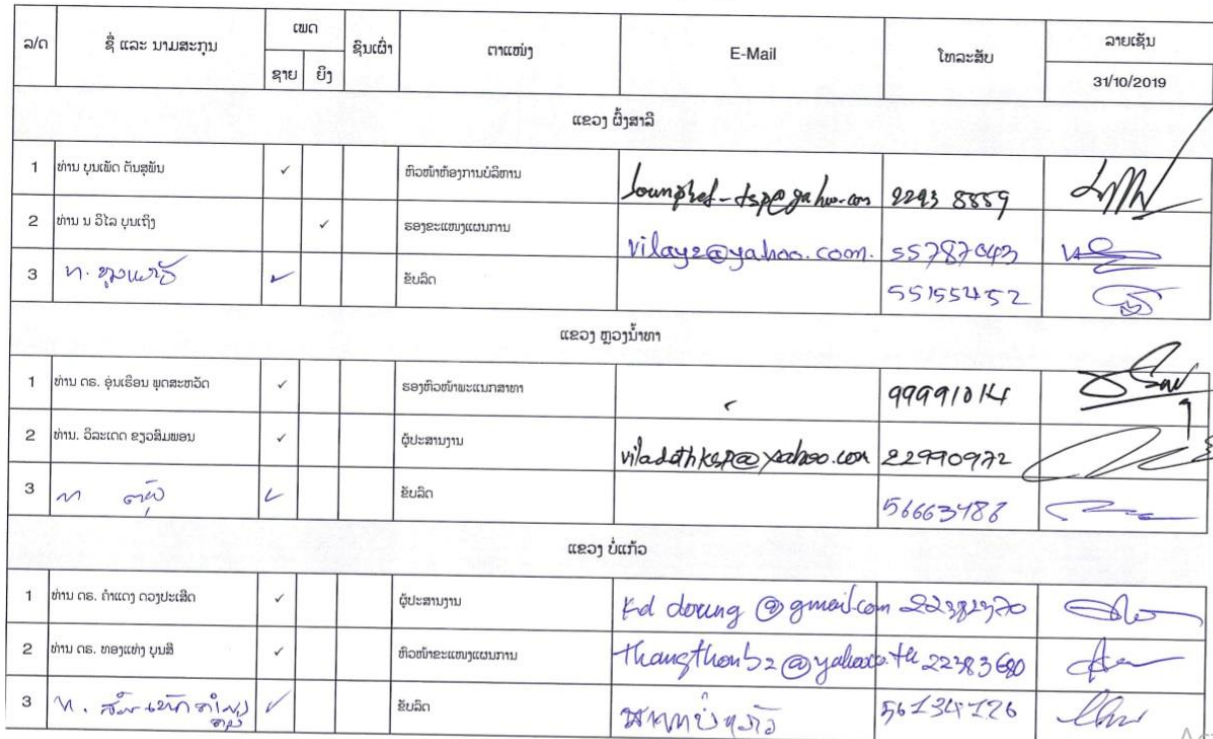 ລ/ດ ຊື່ ແລະ ນາມສະກຸນ ເພດ ຊົນເຜົ່າ ຕາແໜ່ງ E-Mail ໂທລະສັບ ລາຍເຊັນ
ຊາຍ ຍິງ 31/10/2019
ແຂວງ ຜົ້ງສາລີ
1 ທ່ານ ບຸນເພັດ ຕັນສຸພັນ ✓ ຫົວໜ້າຫ້ອງການບໍລິຫານ 2293 8559
2 ທ່ານ ນ ວິໄລ ບຸນເຖິງ ✓ ຮອງຂະແໜງແຜນການ vilay2@yahoo.com. 55787043
3 ທ. ✓ ຂັບລົດ 55155452
ແຂວງ ຫຼວງນ້ຳທາ
1 ທ່ານ ດຣ. ອຸ່ນເຮືອນ ພຸດສະຫວັດ ✓ ຮອງຫົວໜ້າພະແນກສາທາ 99991014
2 ທ່ານ. ວິລະເດດ ຂຽວສົມພອນ ✓ ຜູ້ປະສານງານ viladethksp@yahoo.com 22990972
3 ທ ✓ ຂັບລົດ
ແຂວງ ບໍ່ແກ້ວ
1 ທ່ານ ດຣ. ຄຳແດງ ດວງປະເສີດ ✓ ຜູ້ປະສານງານ kd doung @gmail.com 22382370
2 ທ່ານ ດຣ. ທອງແທ່ງ ບຸນສີ ✓ ຫົວໜ້າຂະແໜງແຜນການ 22383680
3 ທ. ✓ ຂັບລົດ 56134126